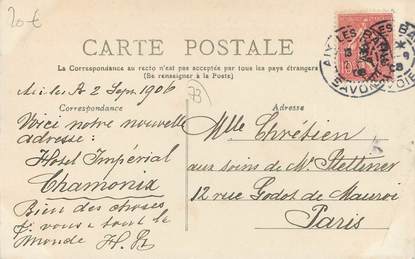 20€
CARTE POSTALE
La Correspondance au recto n'est pas acceptée par tous les pays étrangers
(Se renseigner à la Poste)
AIX-LES-BAINS
SAVOIE
2 Sept 1906
73
Correspondance
Adresse
Voici notre nouvelle
adresse:
Hotel Impérial
Chamonix
Bien des choses
à vous & tout le
monde H. St
Mlle Chrétien
aux soins de Mr Stettiner
12 rue Godot de Mauroi
Paris